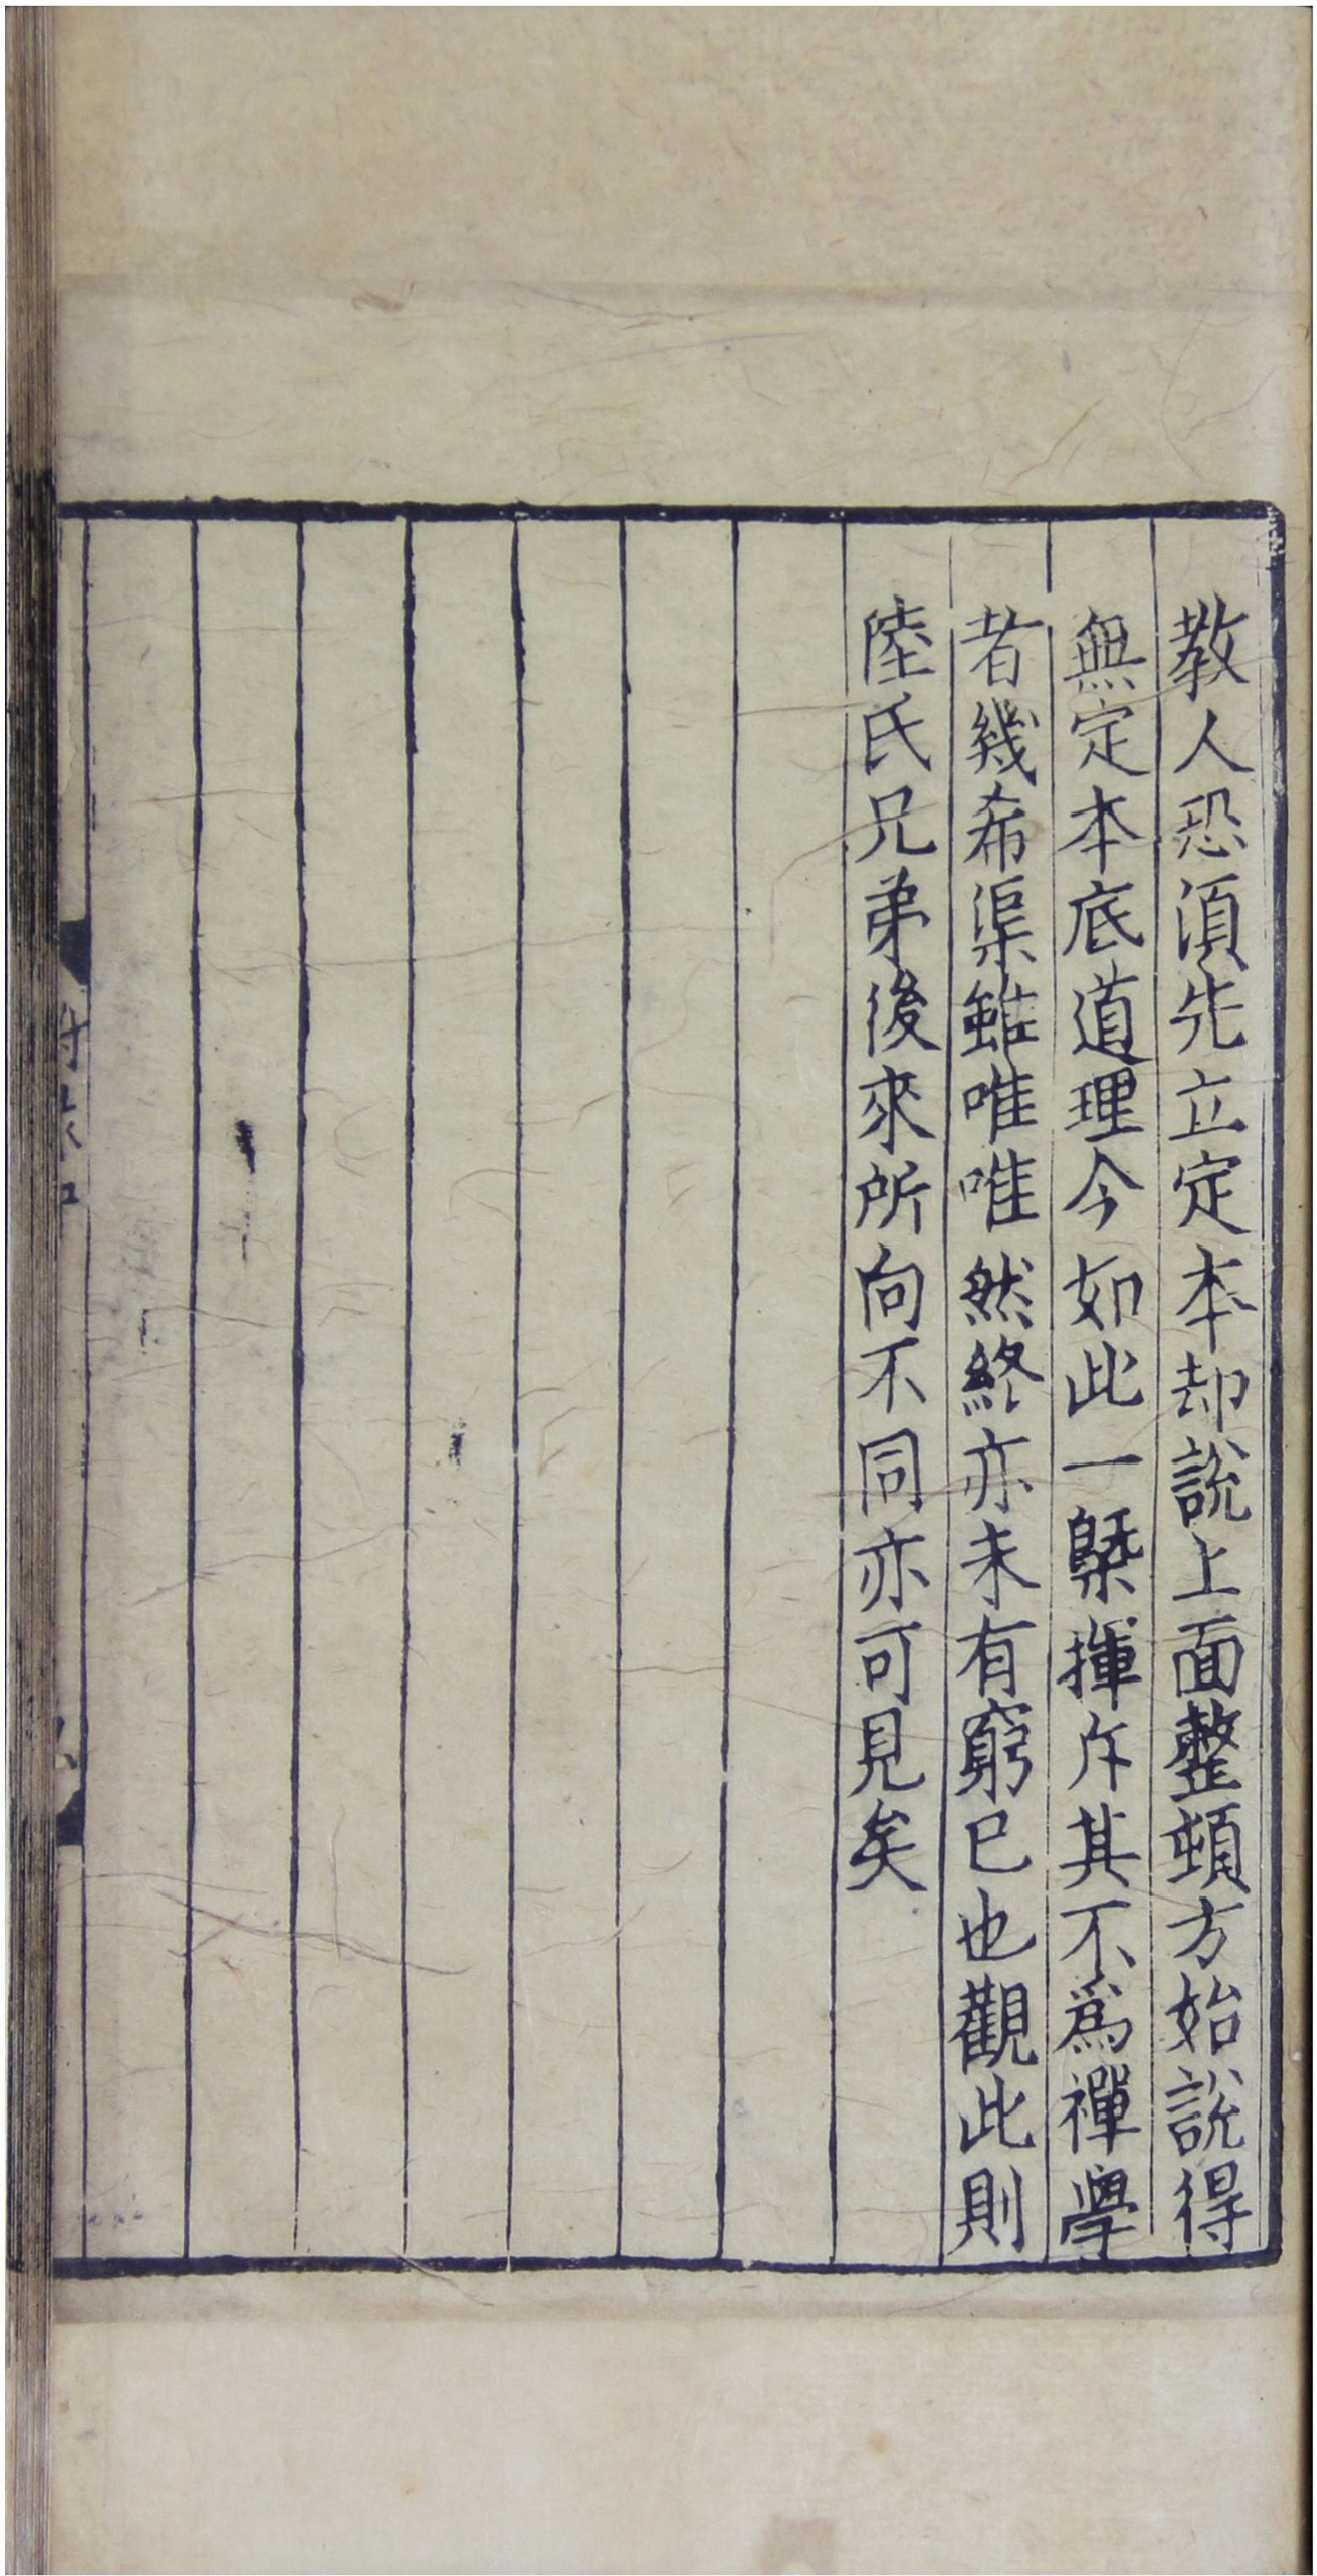 教人恐湏先立定本却說上面整頓方始說得
無定本底道理今如此一槩揮斥其不爲禪學
者幾希渠雖唯唯然終亦未有窮已也觀此則
陸氏兄弟後來所向不同亦可見矣